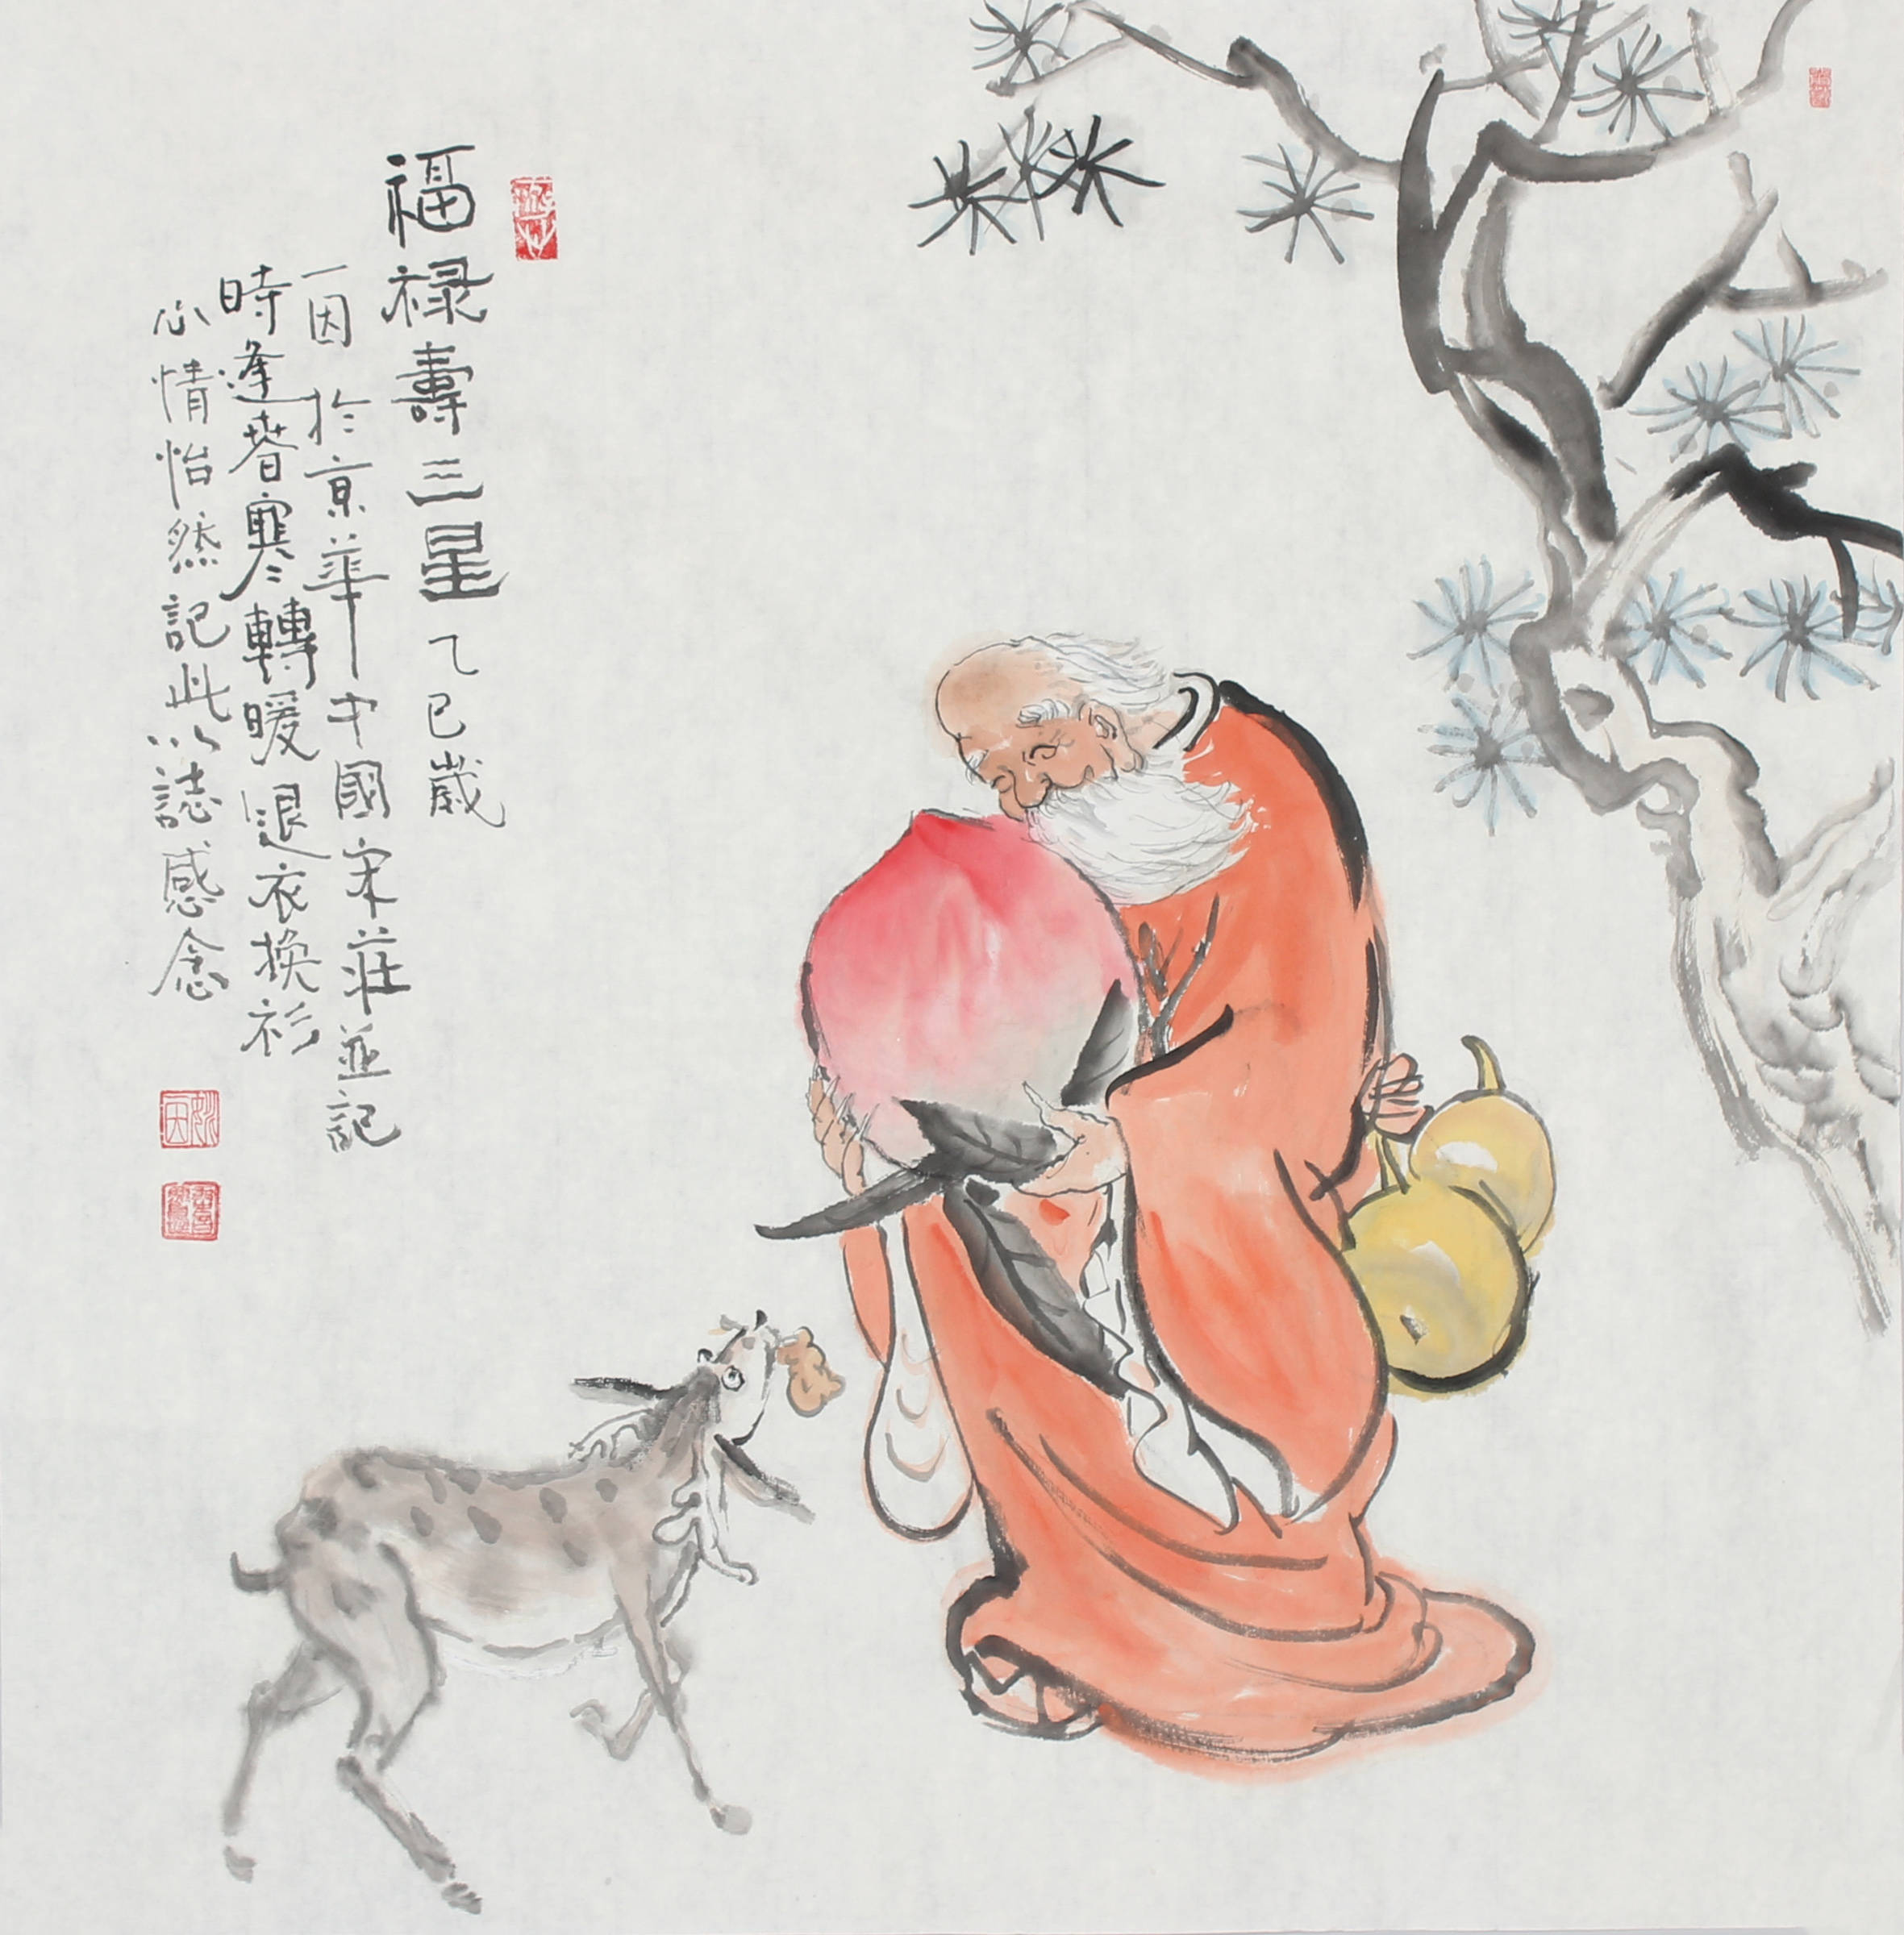 福禄壽三星乙巳歲
一因於京華中國宋莊並記
時逢春寒轉暖退衣換衫
心情怡然記此以誌感念